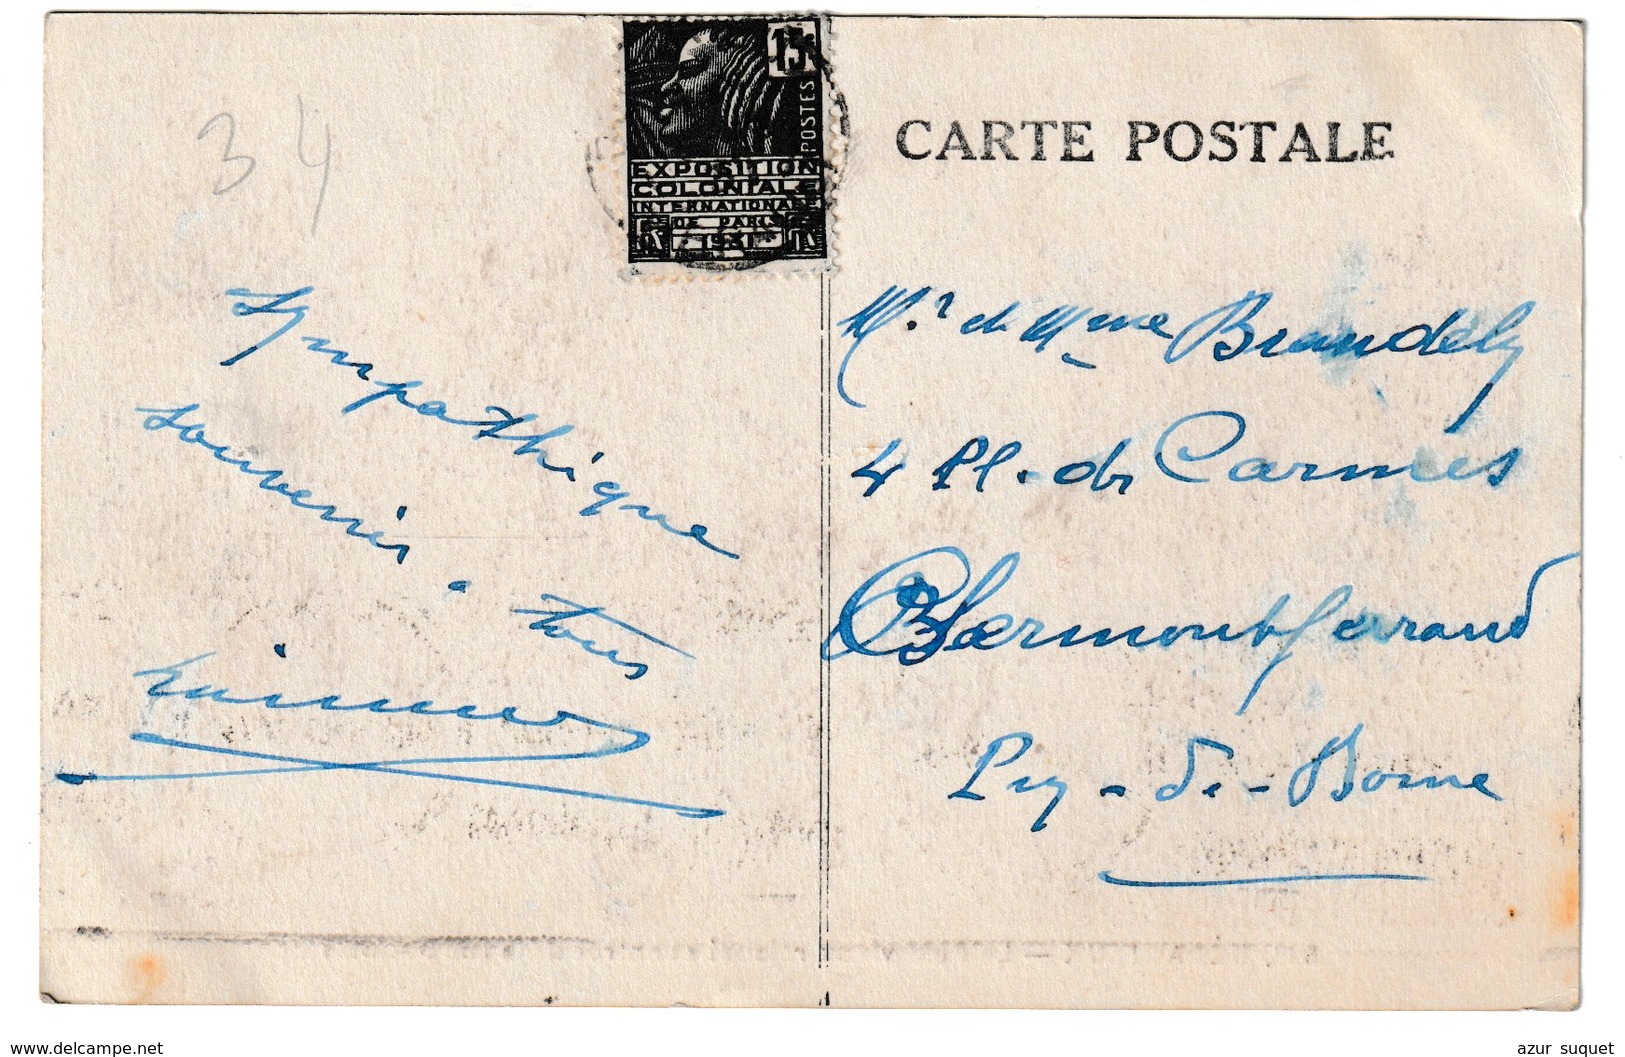 34
15c
POSTES
EXPOSITION
COLONIALE
INTERNATIONALE
DE PARIS
1931
CARTE POSTALE
Sympathique
souvenir à tous
Mr. de Mme Brandély
4 Pl. des Carmes
Clermontferrand
Puy-de-Dome
delcampe.net
azur_suquet